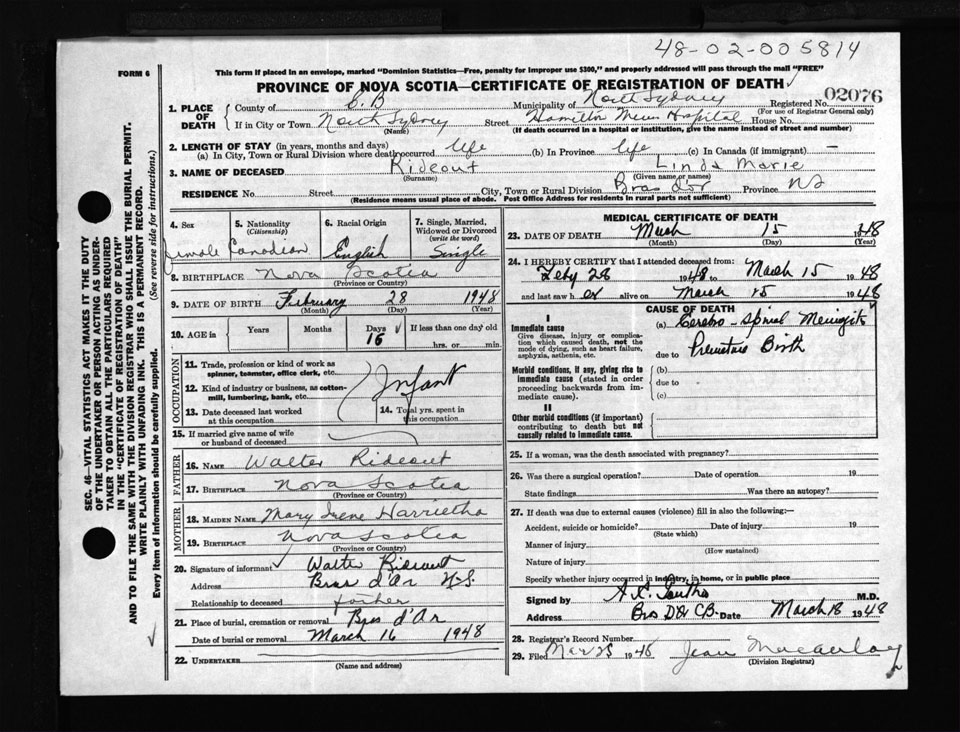 48-02-005814
FORM 6
This form if placed in an envelope, marked "Dominion Statistics—Free, penalty for improper use $300," and properly addressed will pass through the mail "FREE"
PROVINCE OF NOVA SCOTIA—CERTIFICATE OF REGISTRATION OF DEATH
SEC. 46—VITAL STATISTICS ACT MAKES IT THE DUTY
OF THE UNDERTAKER OR PERSON ACTING AS UNDER-
TAKER TO OBTAIN ALL THE PARTICULARS REQUIRED
IN THE "CERTIFICATE OF REGISTRATION OF DEATH"
AND TO FILE THE SAME WITH THE DIVISION REGISTRAR WHO SHALL ISSUE THE BURIAL PERMIT.
WRITE PLAINLY WITH UNFADING INK. THIS IS A PERMANENT RECORD.
Every item of information should be carefully supplied. (See reverse side for instructions.)
1. PLACE OF DEATH
County of C.B Municipality of North Sydney Registered No. 02076
(For use of Registrar General only)
If in City or Town North Sydney Street Hamilton Mem Hospital House No.
(Name) (If death occurred in a hospital or institution, give the name instead of street and number)
2. LENGTH OF STAY (in years, months and days)
(a) In City, Town or Rural Division where death occurred life (b) In Province life (c) In Canada (if immigrant) —
3. NAME OF DECEASED Rideout Linda Marie
(Surname) (Given name or names)
RESIDENCE No. Street City, Town or Rural Division Bras d'or Province NS
(Residence means usual place of abode. Post Office Address for residents in rural parts not sufficient)
4. Sex
Female
5. Nationality
(Citizenship)
Canadian
6. Racial Origin
English
7. Single, Married,
Widowed or Divorced
(write the word)
Single
8. BIRTHPLACE Nova Scotia
(Province or Country)
9. DATE OF BIRTH February 28 1948
(Month) (Day) (Year)
10. AGE in Years Months Days If less than one day old
16 hrs. or min.
OCCUPATION
11. Trade, profession or kind of work as
spinner, teamster, office clerk, etc.
12. Kind of industry or business, as cotton-
mill, lumbering, bank, etc.
Infant
13. Date deceased last worked
at this occupation
14. Total yrs. spent in
this occupation
15. If married give name of wife
or husband of deceased
FATHER
16. NAME Walter Rideout
17. BIRTHPLACE Nova Scotia
(Province or Country)
MOTHER
18. MAIDEN NAME Mary Irene
19. BIRTHPLACE Nova Scotia
(Province or Country)
20. Signature of informant Walter Rideout
Address Bras d'Or N.S.
Relationship to deceased father
21. Place of burial, cremation or removal Bras d'Or
Date of burial or removal March 16 1948
22. UNDERTAKER
(Name and address)
MEDICAL CERTIFICATE OF DEATH
23. DATE OF DEATH March 15 1948
(Month) (Day) (Year)
24. I HEREBY CERTIFY that I attended deceased from:
Feby 28 1948 to March 15 1948
and last saw h er alive on March 15 1948
CAUSE OF DEATH
I
Immediate cause
Give disease, injury or complica-
tion which caused death, not the
mode of dying, such as heart failure,
asphyxia, asthenia, etc.
(a) Cerebro-Spinal Meningitis
due to Premature Birth
Morbid conditions, if any, giving rise to
immediate cause (stated in order
proceeding backwards from im-
mediate cause).
(b)
due to
(c)
II
Other morbid conditions (if important)
contributing to death but not
causally related to immediate cause.
25. If a woman, was the death associated with pregnancy?
26. Was there a surgical operation? Date of operation 19
State findings Was there an autopsy?
27. If death was due to external causes (violence) fill in also the following:—
Accident, suicide or homicide? Date of injury 19
(State which)
Manner of injury
(How sustained)
Nature of injury
Specify whether injury occurred in industry, in home, or in public place
Signed by M.D.
Bras D'Or C.B. Date March 18 1948
28. Registrar's Record Number
29. Filed Mar 1946 Jean
(Division Registrar)